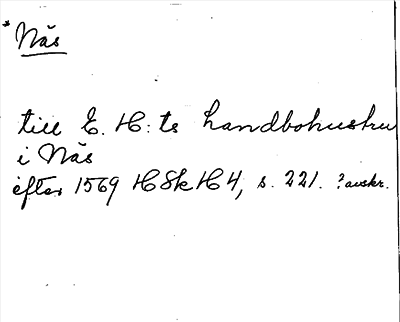 * Näs
till E. H:ts handbohustru
i Näs
efter 1569 HSkH 4, s. 221. ? avskr.